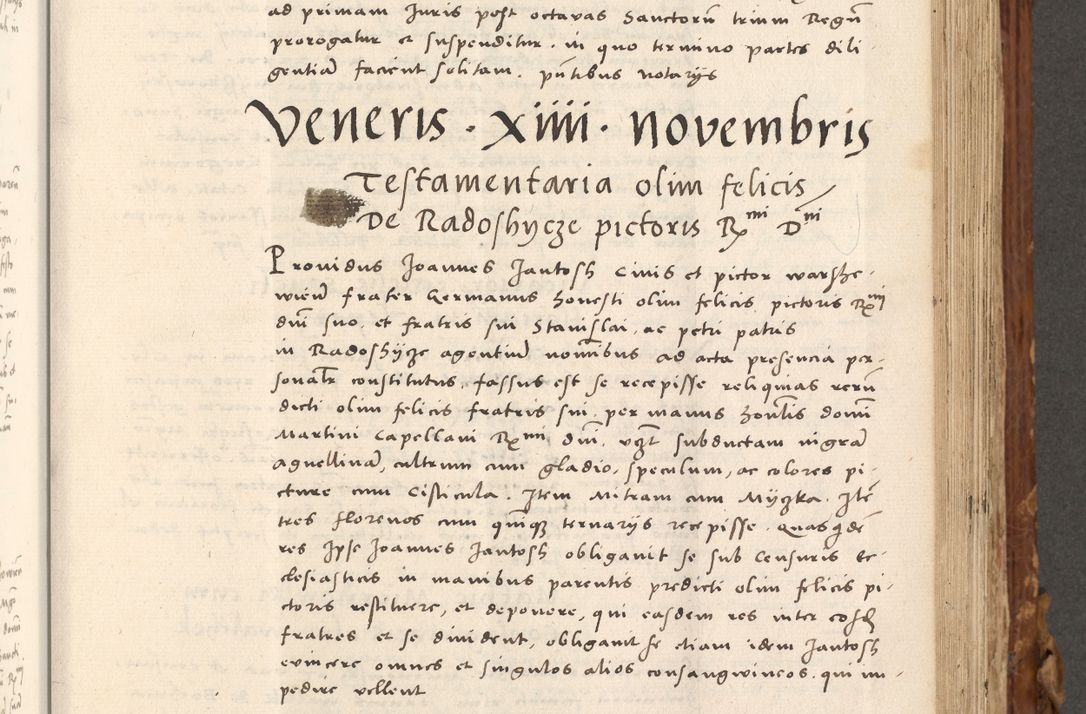 ad primam Juris post octavas Sanctorū trium Regū
prorogatur et suspenditur. in quo termino partes dili-
gentiā facient solitam. pñtibus notarijs
Veneris · Xiiii · novembris
Testamentaria olim felicis
De Radoshycze pictoris Rmi Dni
Providus Joannes Jantosh Civis et pictor warshe-
wieñ frater germanus honesti olim felicis pictoris Rmi
dni suo et fratris sui Stanislai, ac petri patris
in Radoshycze agentiū nomībus ad acta presencia per-
sonalr constitutus, fassus est se recepisse reliquias rerū
dicti olim felicis fratris sui per manus honlis domī
Martini Capellani Rmi dni. vczt subductam nigrā
agnellinā, cultrum cum gladio, speculum, ac colores pi-
cture cum Cisticula. Item Mitram cum Myczka. Itē
tres florenos cum quīqz ternarijs recepisse. Quasqdē
res Ipse Joannes Jantosh obligavit se sub Censuris ec-
clesiasticis in manibus parentis predicti olim felicis pi-
ctoris restituere, et deponere, qui easdem res inter cosdē
fratres et se divident, obligavit se etiam idem Jantosh
evincere omnes et singulos alios consangwineos, qui im-
pedire vellent